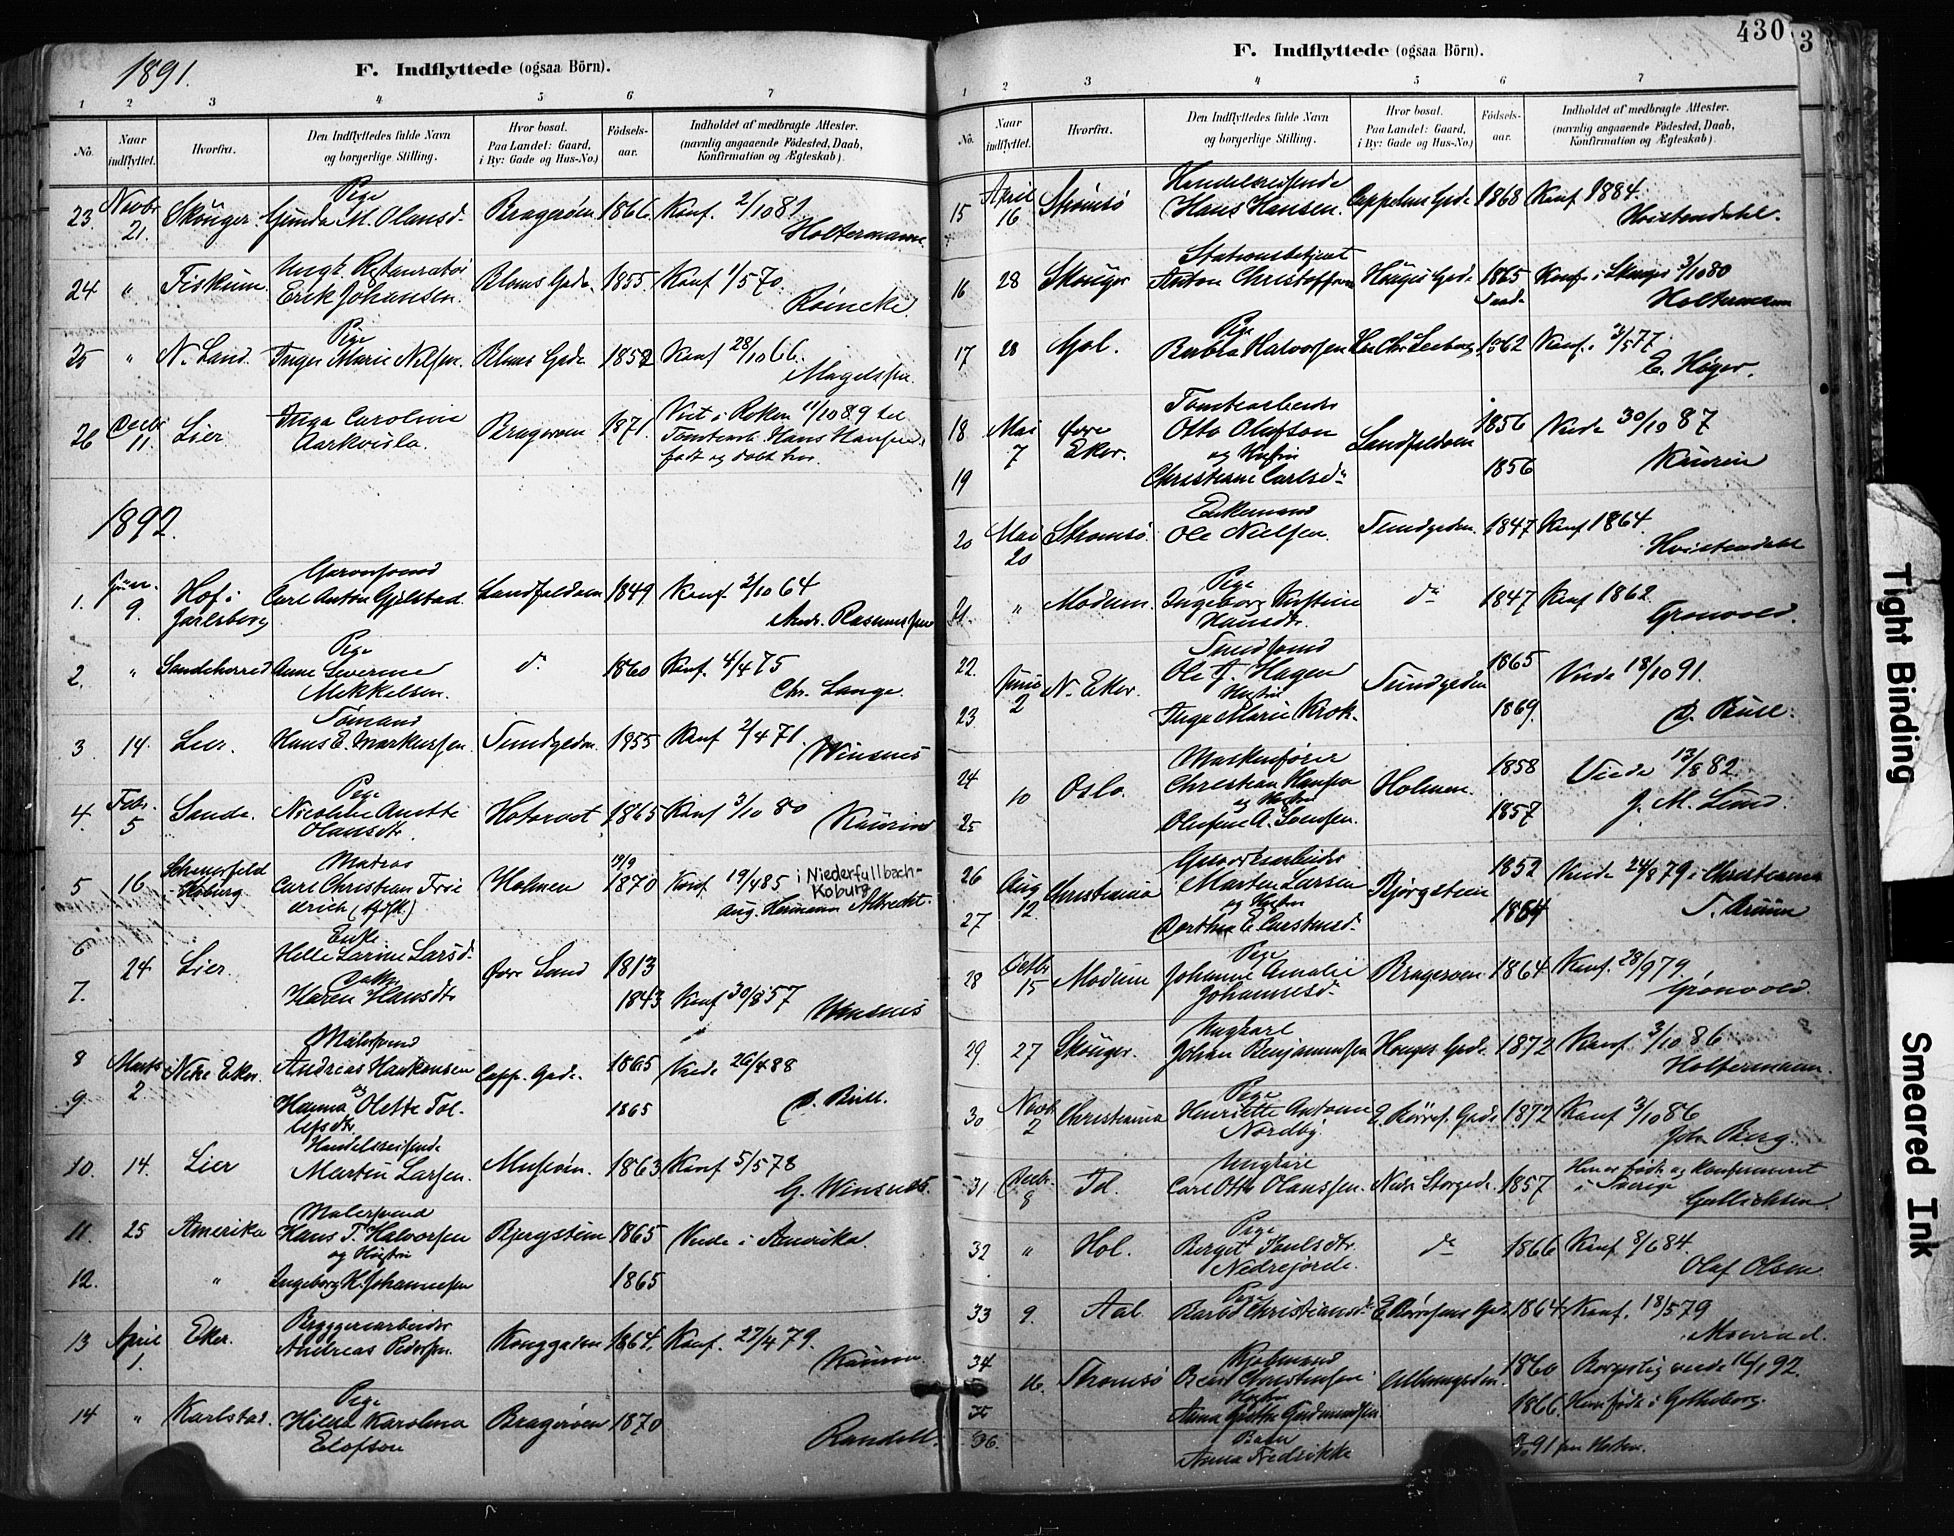 1891.
F. Indflyttede (ogsaa Börn).
1 2 3 4 5 6 7
No. Naar indflyttet. Hvorfra. Den Indflyttedes fulde Navn og borgerlige Stilling. Hvor bosat. Paa Landet: Gaard, i By: Gade og Hus-No.) Födsels-aar. Indholdet af medbragte Attester. (navnlig angaaende Födested, Daab, Konfirmation og Ægteskab).
Pige
23 Novbr 21. Skouger Gunda M. Olansd. Bragerøen 1866 Konf. 2/10 81
Holtermann
Ungk. Restauratør
24 " Fiskum Erik Johansen Bloms Gade 1855 Konf 1/5 70
Reincke
Pige
25 " N. Land. Inger Marie Nilsen Bloms Gade 1852 Konf 28/10 66.
Magelssen
26 Decbr 11. Lier. Inga Caroline Bragerøen 1871. Viet i Røken 11/10 89 til
Hans Hansen
født og døbt her.
1892.
Garversvend
1. Januar 9 Hof i Jarlsberg Carl Anton Gjelstad Landfaldøen 1849 Konf. 2/10 64
Andr. Rasmussen
Pige
2. " Sandeherred Anne Severine Mikkelsen. do 1860 Konf. 4/4 75
Chr. Lange.
Sømand
3 14. Lier. Hans E. Markussen Tundgaden 1855 Konf 2/4 71
Winsnes
Pige
4. Febr. 5 Sande. Nicoline Anette Olausdtr. Hotvedt 1865 Konf 3/10 80
Kaurin
Matros
5 16 Koburg Carl Christian Friedrich Holmen 19/9 1870 Konf 19/4 85 i Niederfullbach-Koburg
Aug. Hermann Albrecht.
Enke
6 24. Lier. Helle Larine Larsd. Øvre Sund 1813
Datter
7. Karen Hansdtr 1843 Konf 30/8 57
Winsnes
Malersvend
8 Marts 2 Nedre Eker. Andreas Haakonsen Capp. Gade. 1865 Viede 26/4 88
og
9 Hanna Olette Tollefsdtr. 1865
D. Bull.
Handelsreisende
10. 14. Lier Martin Larsen. Museøen. 1863 Konf 5/5 78
G. Winsnes.
Malersvend
11. 25 Amerika Hans T. Halvorsen Bjergstien 1865 Viede i Amerika.
og Hustru
12. " Ingeborg K. Johannesen 1865
Bryggeriarbeider
13 April 1. Eker. Andreas Pedersen. Konggaden 1864. Konf. 27/4 79.
Kaurin
Pige
14 " Karlstad. Hilda Karolina Elofson Bragerøen 1870
Randell.
430
3
F. Indflyttede (ogsaa Börn).
1 2 3 4 5 6 7
No. Naar indflyttet. Hvorfra. Den Indflyttedes fulde Navn og borgerlige Stilling. Hvor bosat. Paa Landet: Gaard, i By: Gade og Hus-No.) Födsels-aar. Indholdet af medbragte Attester. (navnlig angaaende Födested, Daab, Konfirmation og Ægteskab).
Handelsreisende
15 April 16 Strømsø Hans Hansen. Cappelens Gade 1868 Konf 1884.
Hvistendahl.
Stationsbetjent
16 28 Skouger Anton Christoffersen Hauges Gade 1865 Konf. i Skoger 3/10 80
Holtermann
Pige
17 28 Gol. Barbra Halvorsen 1862 Konf. 3/5 77
E. Høyer.
Tomtearbeider
18 Mai 7 Øvre Eker. Otto Olafson Landfaldøen 1856 Viede 30/10 87
og Hustru
19 Christiane Carlsdtr 1856 Kaurin
Enkemand
20 Mai 20 Strømsø. Ole Nielsen. Tundgaden 1847 Konf 1864.
Hvistendahl
Pige
21. " Modum. Ingeborg Kirstine Hansdtr. do 1847 Konf 1862
Grønvold.
22. Juni 2 N. Eker. Ole J. Hagen Tundgaden 1865 Viede 18/10 91.
Hustru
23 Inga Marie Krok. 1869. D. Bull.
Maskinfører
24 10 Oslo. Christian Hansen Holmen. 1858 Viede 13/8 82.
og Hustru
25 Olufine A. Svensen. 1857 J. M. Lund.
26 Aug 12 Christiania Marten Larsen Bjergstien 1852 Viede 24/8 79 i Christiania
og Hustru
27 Dorthea E. 1864
Pige
28 Octbr 15 Modum Johanne Amalie Johannesd. Bragerøen 1864 Konf. 28/9 79.
Grønvold.
Ungkarl
29 27 Skouger. Johan Benjaminsen Hauges Gade. 1872 Konf. 3/10 86
Holtermann.
Pige
30 Novb 2 Christiania Henriette Antonie Nordby. 1872 Konf 3/10 86
Joh. Berg.
Ungkarl
31 Decbr. 8 Id. Carl Otto Olaussen. Nedre Storgade. 1857 Han er født og konfirmeret i Sverige
Pige
32 " Hol. Bergit Paulsdtr. Nedrejorde. do 1866 Konf. 8/6 84.
Olaf Olsen
Pige
33 9. Aal. Barbo Christiansdtr E. Børresens Gade 1864 Konf. 18/5 79
Monrad.
34 16. Strømsø 1860 Borgerlig viede 16/1 92.
Hustru
35 Anna 1866. Hun født i Gotheborg.
Barn
36. Anna Fredrikke
Tight Binding
Smeared Ink